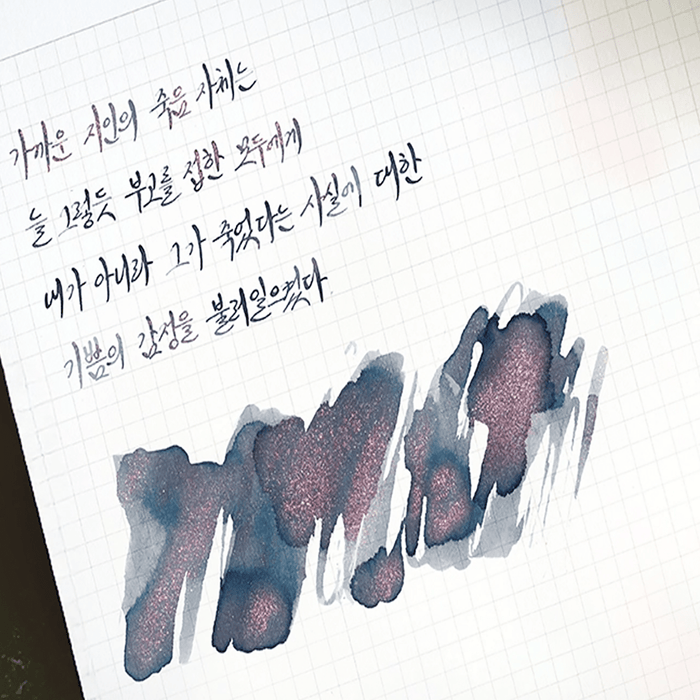 가까운 지인의 죽음 자체는
늘 그렇듯 부고를 접한 모두에게
내가 아니라 그가 죽었다는 사실에 대한
기쁨의 감정을 불러일으켰다